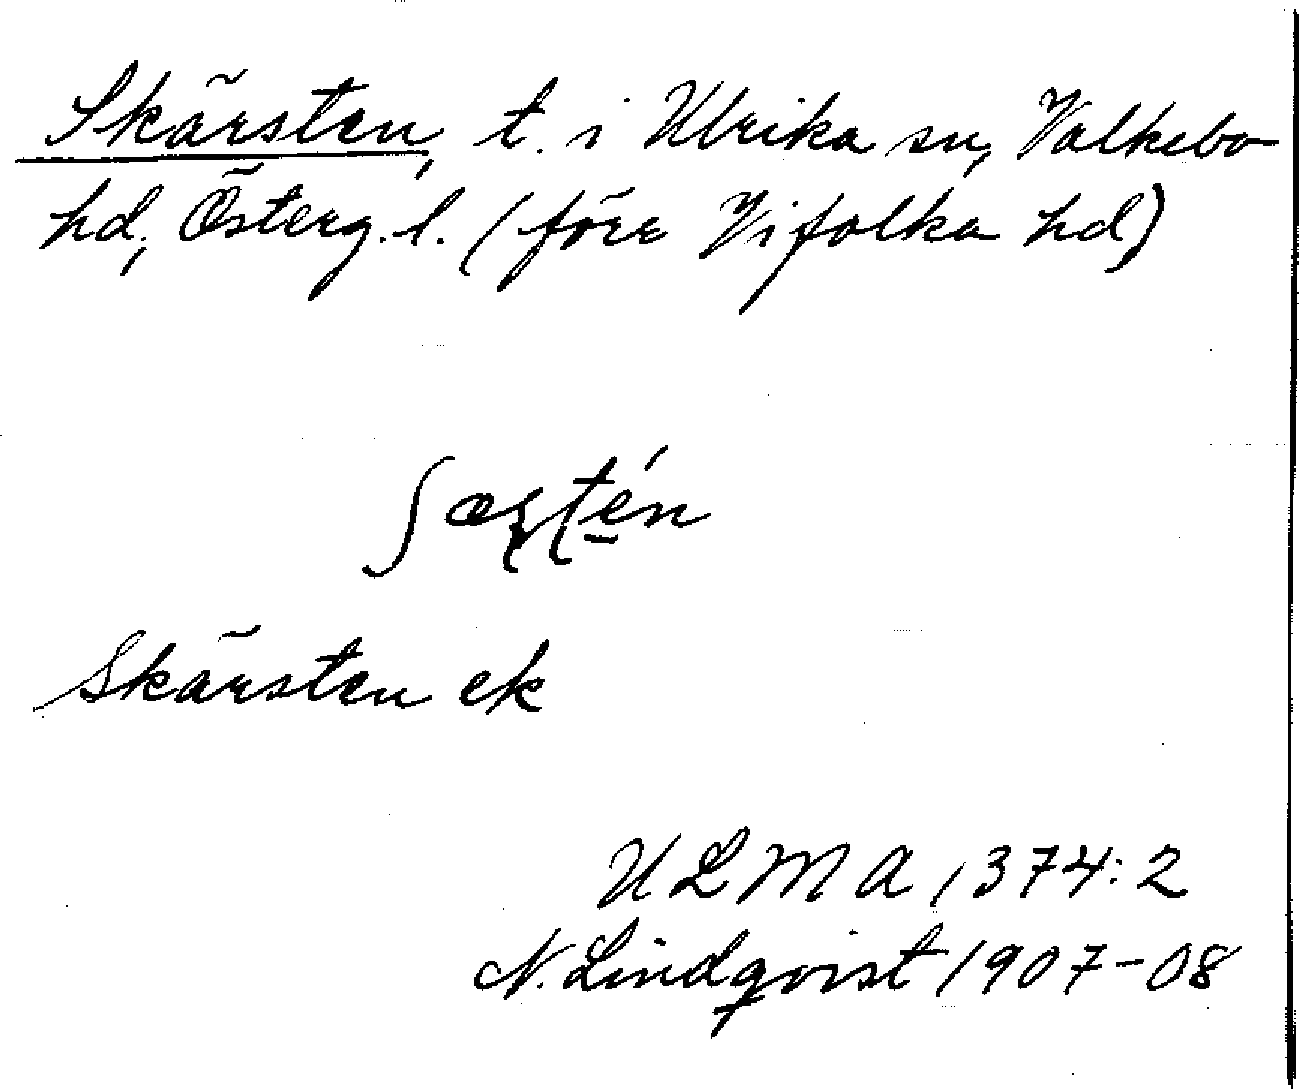 Skärsten, t. i Ulrika sn, Valkebo
hd, Österg. l. (förr Vifolka hd)
ʃæʂʈé̱n
Skärsten ek
ULMA 1374:2
N. Lindqvist 1907-08